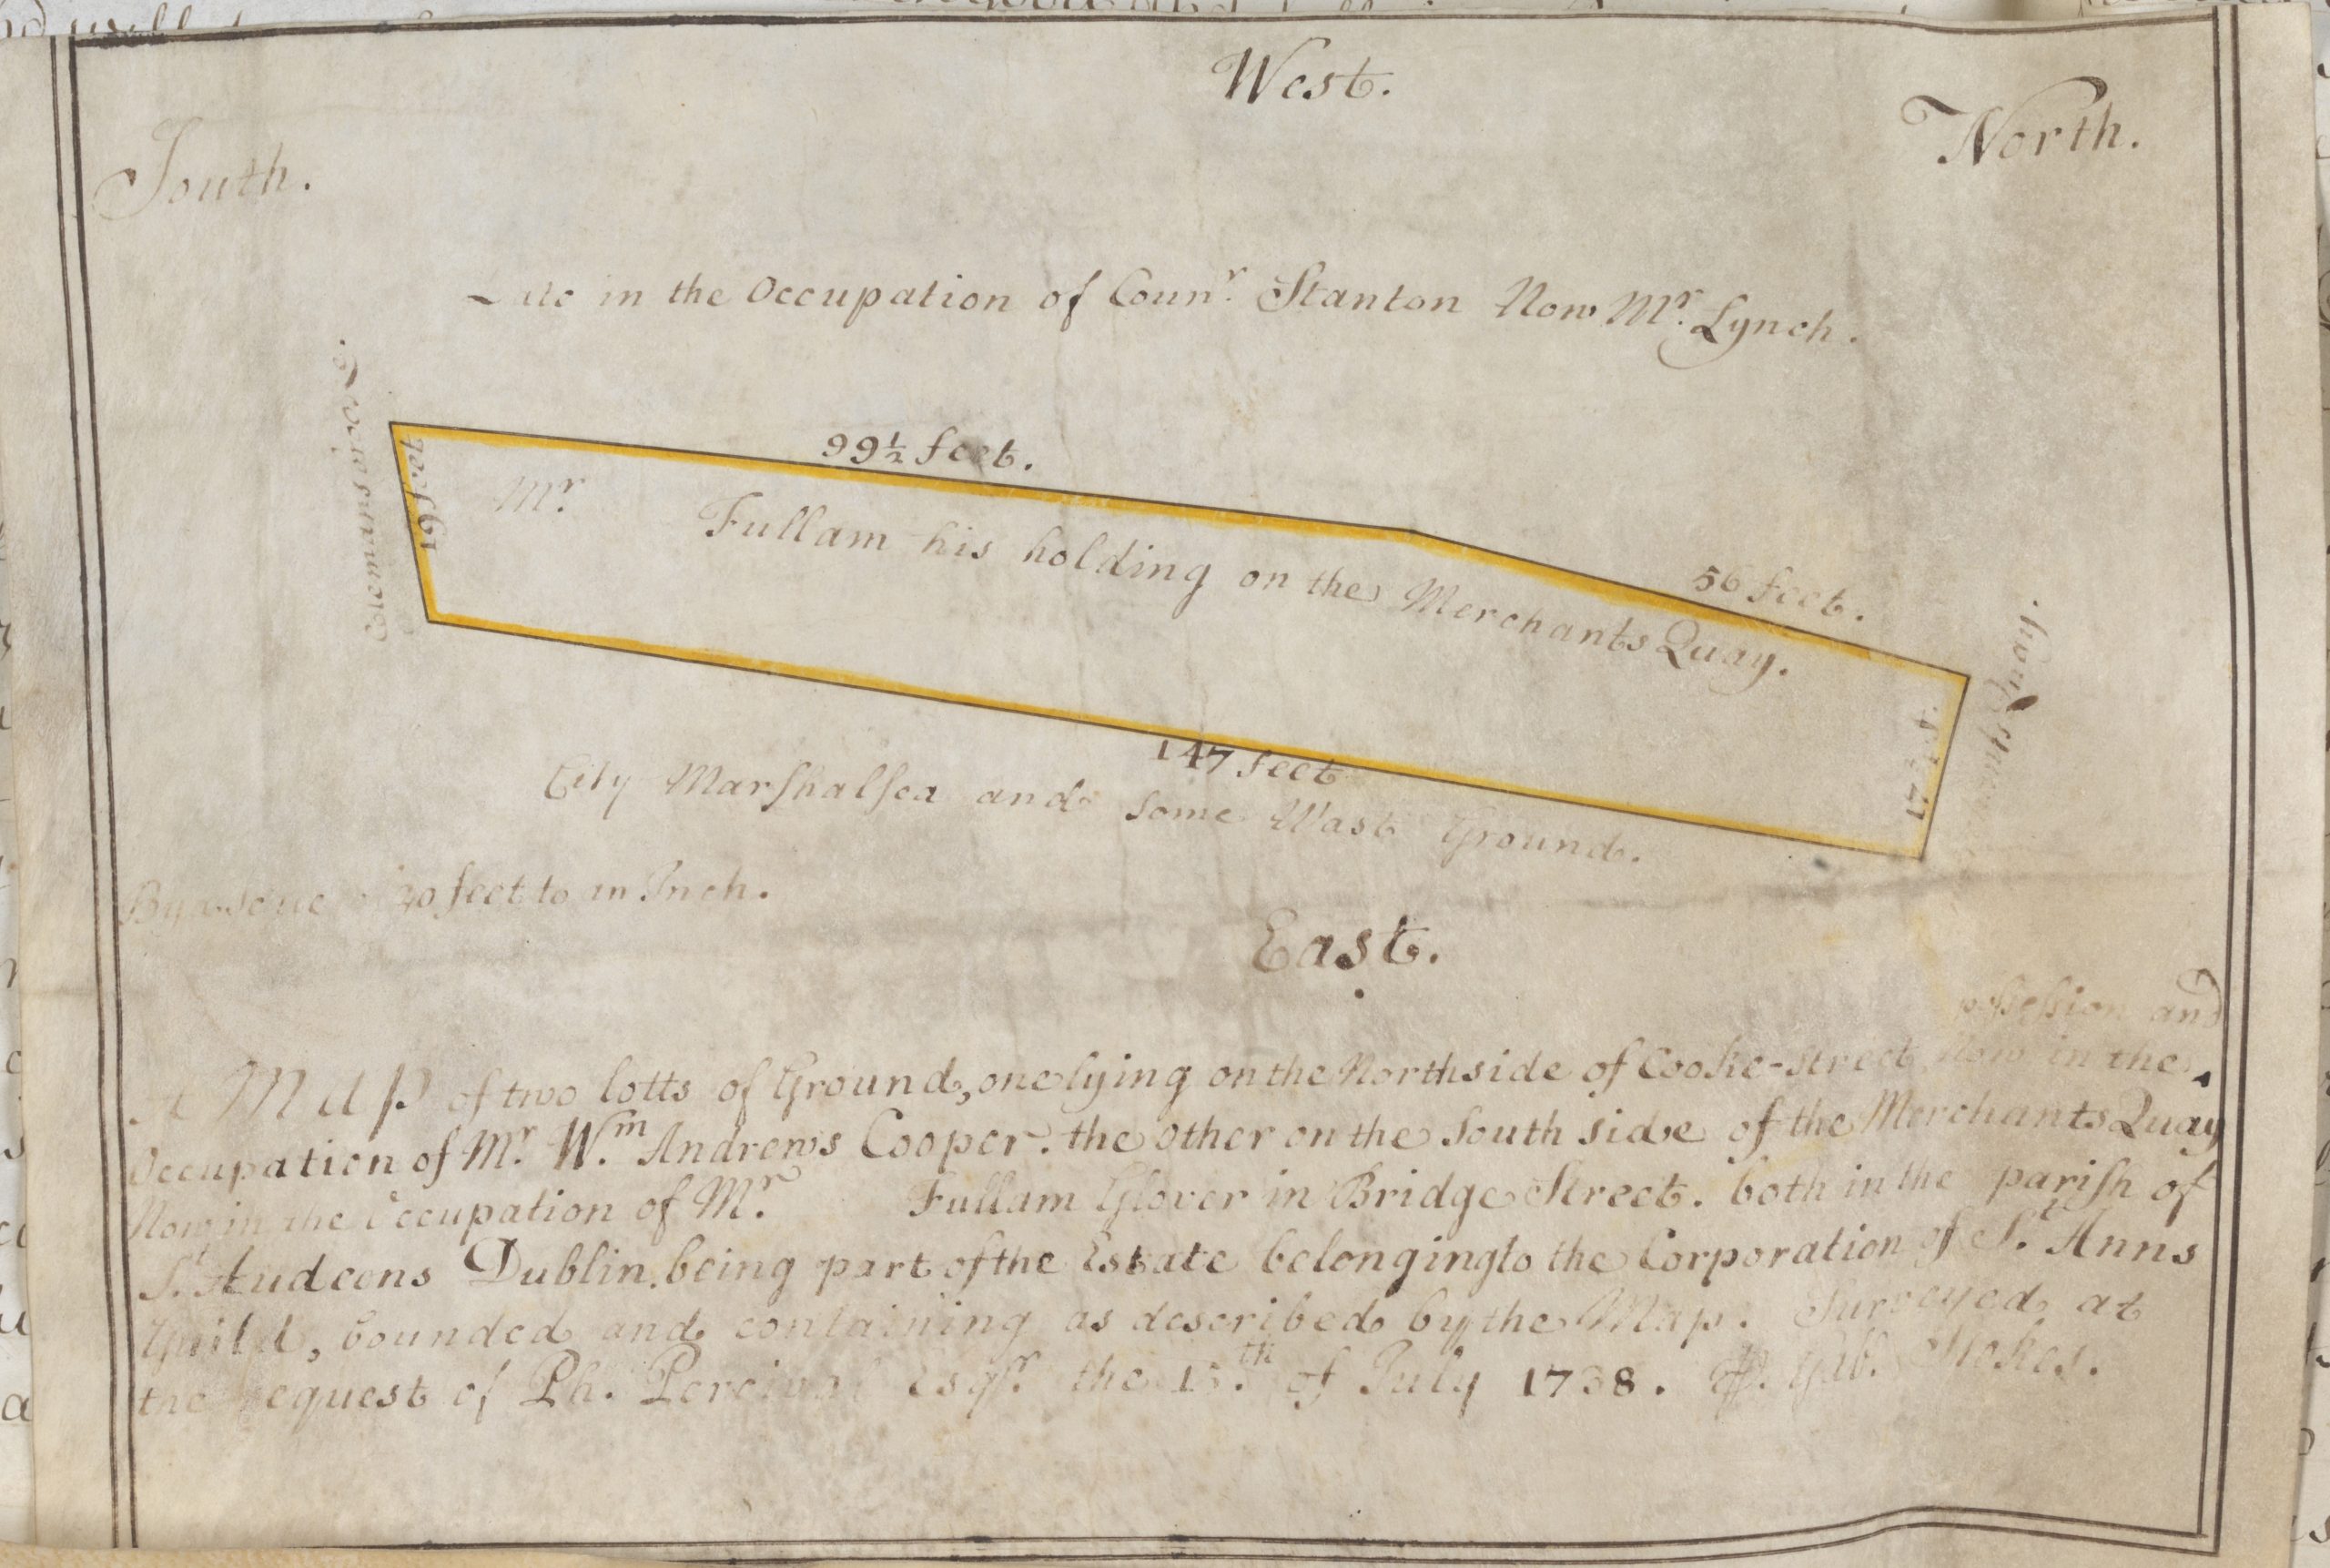 West.
South.
North.
in the Occupation of Counr. Stanton Now Mr. Lynch.
99½ feet.
19 feet
Mr. Fullam his holding on the Merchants Quay.
56 feet.
17
147 feet
City Marshalsea and some Wast Ground.
20 feet to an Inch.
East.
possession and
A Map of two lotts of Ground, one lying on the North side of Cooke-Street Now in the
Occupation of Mr. Wm. Andrews Cooper. the other on the South side of the Merchants Quay
Now in the Occupation of Mr. Fullam Glover in Bridge Street. both in the parish of
St. Audeons Dublin. being part of the Estate belonging to the Corporation of St. Anns
Guild, bounded and containing as described by the Map. Surveyed at
the request of Ph. Percival Esqr. the 15th. of July 1738. Gab. Stokes.